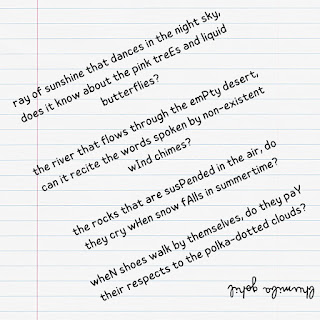 ray of sunshine that dances in the night sky,
does it know about the pink treEs and liquid
butterflies?
the river that flows through the emPty desert,
can it recite the words spoken by non-existent
wInd chimes?
the rocks that are susPended in the air, do
they cry wHen snow fAlls in summertime?
wheN shoes walk by themselves, do they paY
their respects to the polka-dotted clouds?
khumika gohil